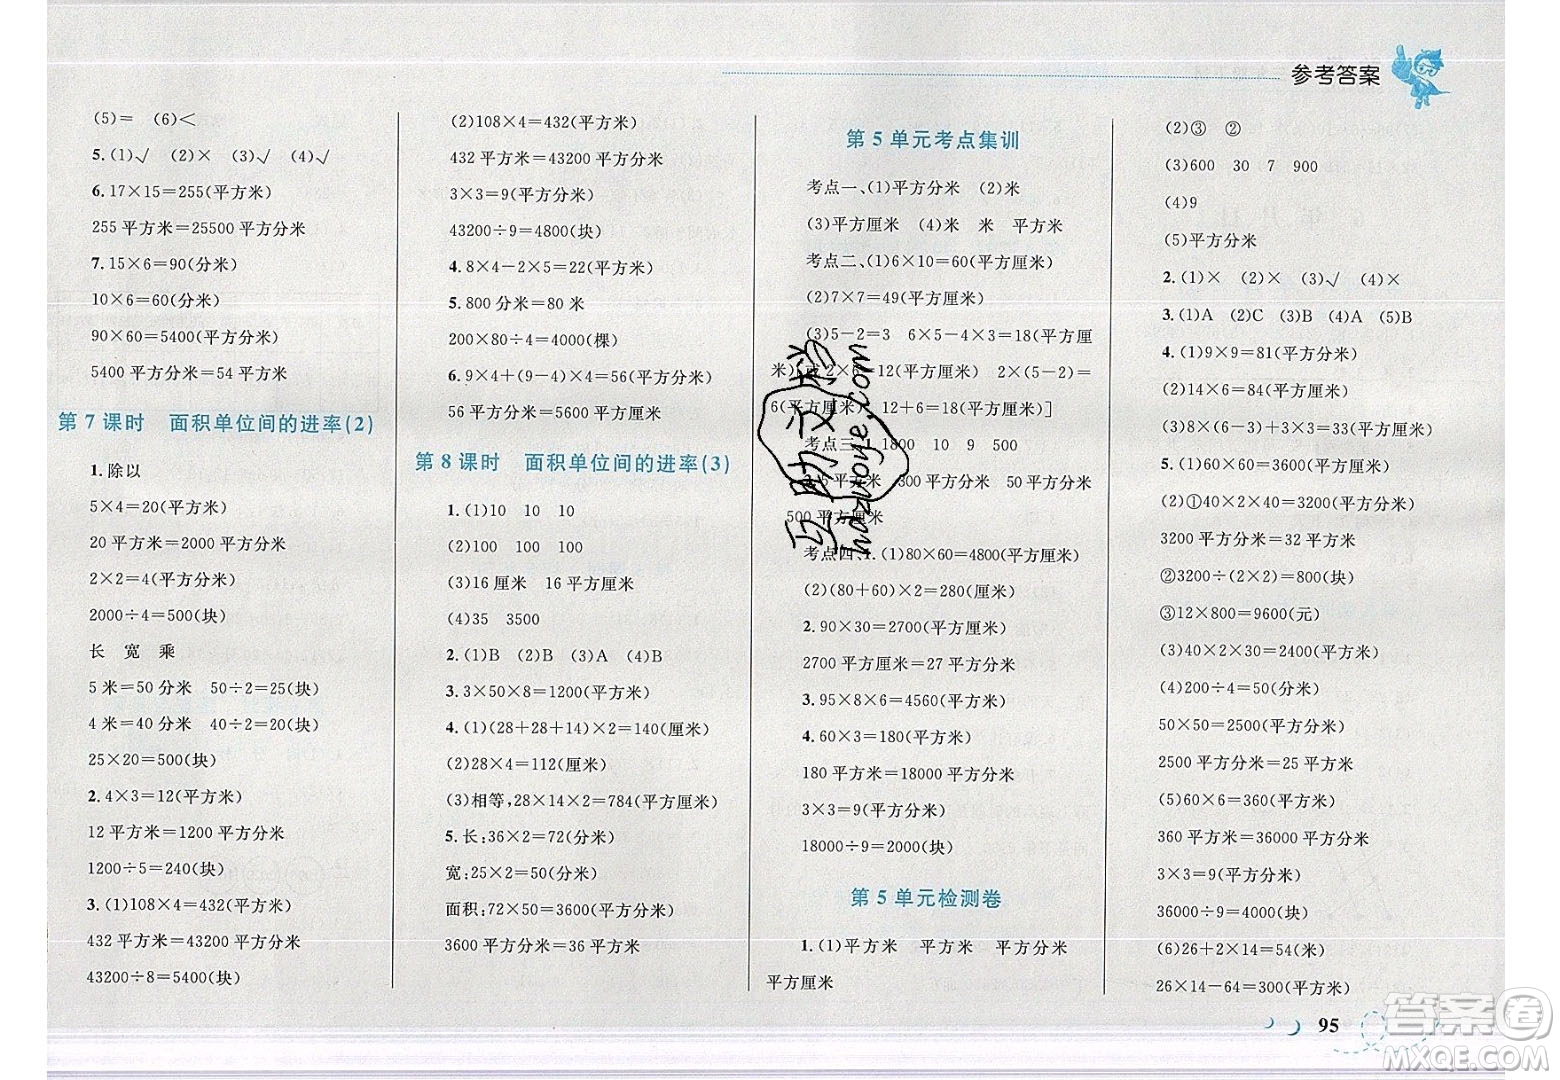 参考答案
(5)= (6)<
5.(1)√ (2)× (3)√ (4)√
6.17×15=255(平方米)
255 平方米=25500 平方分米
7.15×6=90(分米)
10×6=60(分米)
90×60=5400(平方分米)
5400 平方分米=54 平方米
第 7 课时 面积单位间的进率(2)
1.除以
5×4=20(平方米)
20 平方米=2000 平方分米
2×2=4(平方分米)
2000÷4=500(块)
长 宽 乘
5 米=50 分米 50÷2=25(块)
4 米=40 分米 40÷2=20(块)
25×20=500(块)
2.4×3=12(平方米)
12 平方米=1200 平方分米
1200÷5=240(块)
3.(1)108×4=432(平方米)
432 平方米=43200 平方分米
43200÷8=5400(块)
(2)108×4=432(平方米)
432 平方米=43200 平方分米
3×3=9(平方分米)
43200÷9=4800(块)
4.8×4-2×5=22(平方米)
5.800 分米=80 米
200×80÷4=4000(棵)
6.9×4+(9-4)×4=56(平方米)
56 平方米=5600 平方分米
第 8 课时 面积单位间的进率(3)
1.(1)10 10 10
(2)100 100 100
(3)16 厘米 16 平方厘米
(4)35 3500
2.(1)B (2)B (3)A (4)B
3.3×50×8=1200(平方米)
4.(1)(28+28+14)×2=140(厘米)
(2)28×4=112(厘米)
(3)相等,28×14×2=784(平方厘米)
5.长:36×2=72(分米)
宽:25×2=50(分米)
面积:72×50=3600(平方分米)
3600 平方分米=36 平方米
第 5 单元考点集训
考点一、(1)平方分米 (2)米
(3)平方厘米 (4)米 米 平方米
考点二、(1)6×10=60(平方厘米)
(2)7×7=49(平方厘米)
(3)5-2=3 6×5-4×3=18(平方厘
米)[或 2×6=12(平方厘米) 2×(5-2)=
6(平方厘米) 12+6=18(平方厘米)]
考点三、1.1800 10 9 500
2.5 平方米 300 平方分米 50 平方分米
500 平方厘米
考点四、1.(1)80×60=4800(平方厘米)
(2)(80+60)×2=280(厘米)
2.90×30=2700(平方厘米)
2700 平方厘米=27 平方分米
3.95×8×6=4560(平方米)
4.60×3=180(平方米)
180 平方米=18000 平方分米
3×3=9(平方分米)
18000÷9=2000(块)
第 5 单元检测卷
1.(1)平方米 平方米 平方分米
平方厘米
(2)③ ②
(3)600 30 7 900
(4)9
(5)平方分米
2.(1)× (2)× (3)√ (4)×
3.(1)A (2)C (3)B (4)A (5)B
4.(1)9×9=81(平方米)
(2)14×3=42(平方分米)
(3)8×(6-3)+3×3=33(平方米)
5.(1)60×60=3600(平方米)
(2)①40×2×40=3200(平方米)
3200 平方分米=32 平方米
②3200÷(2×2)=800(块)
③12×800=9600(元)
(3)40×30×2=2400(平方米)
(4)200÷4=50(分米)
50×50=2500(平方分米)
2500 平方分米=25 平方米
(5)60×6=360(平方米)
360 平方米=36000 平方分米
3×3=9(平方分米)
36000÷9=4000(块)
(6)26+2×14=54(米)
26×14-64=300(平方米)
95
互助文档
hdzuoye.com
答案圈
MXQE.COM